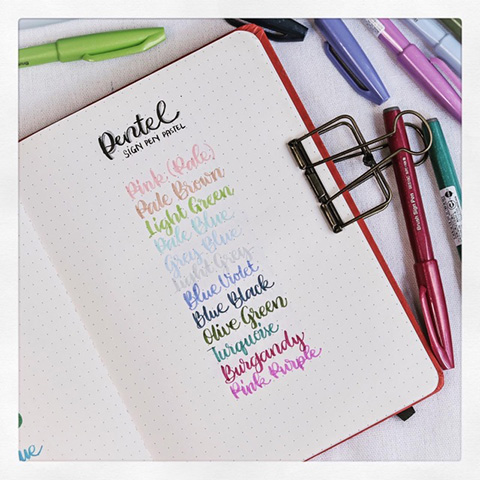 Pentel
SIGN PEN PASTEL
Pink (Pale)
Pale Brown
Light Green
Pale Blue
Grey Blue
Light Grey
Blue Violet
Blue Black
Olive Green
Turquoise
Burgandy
Pink Purple